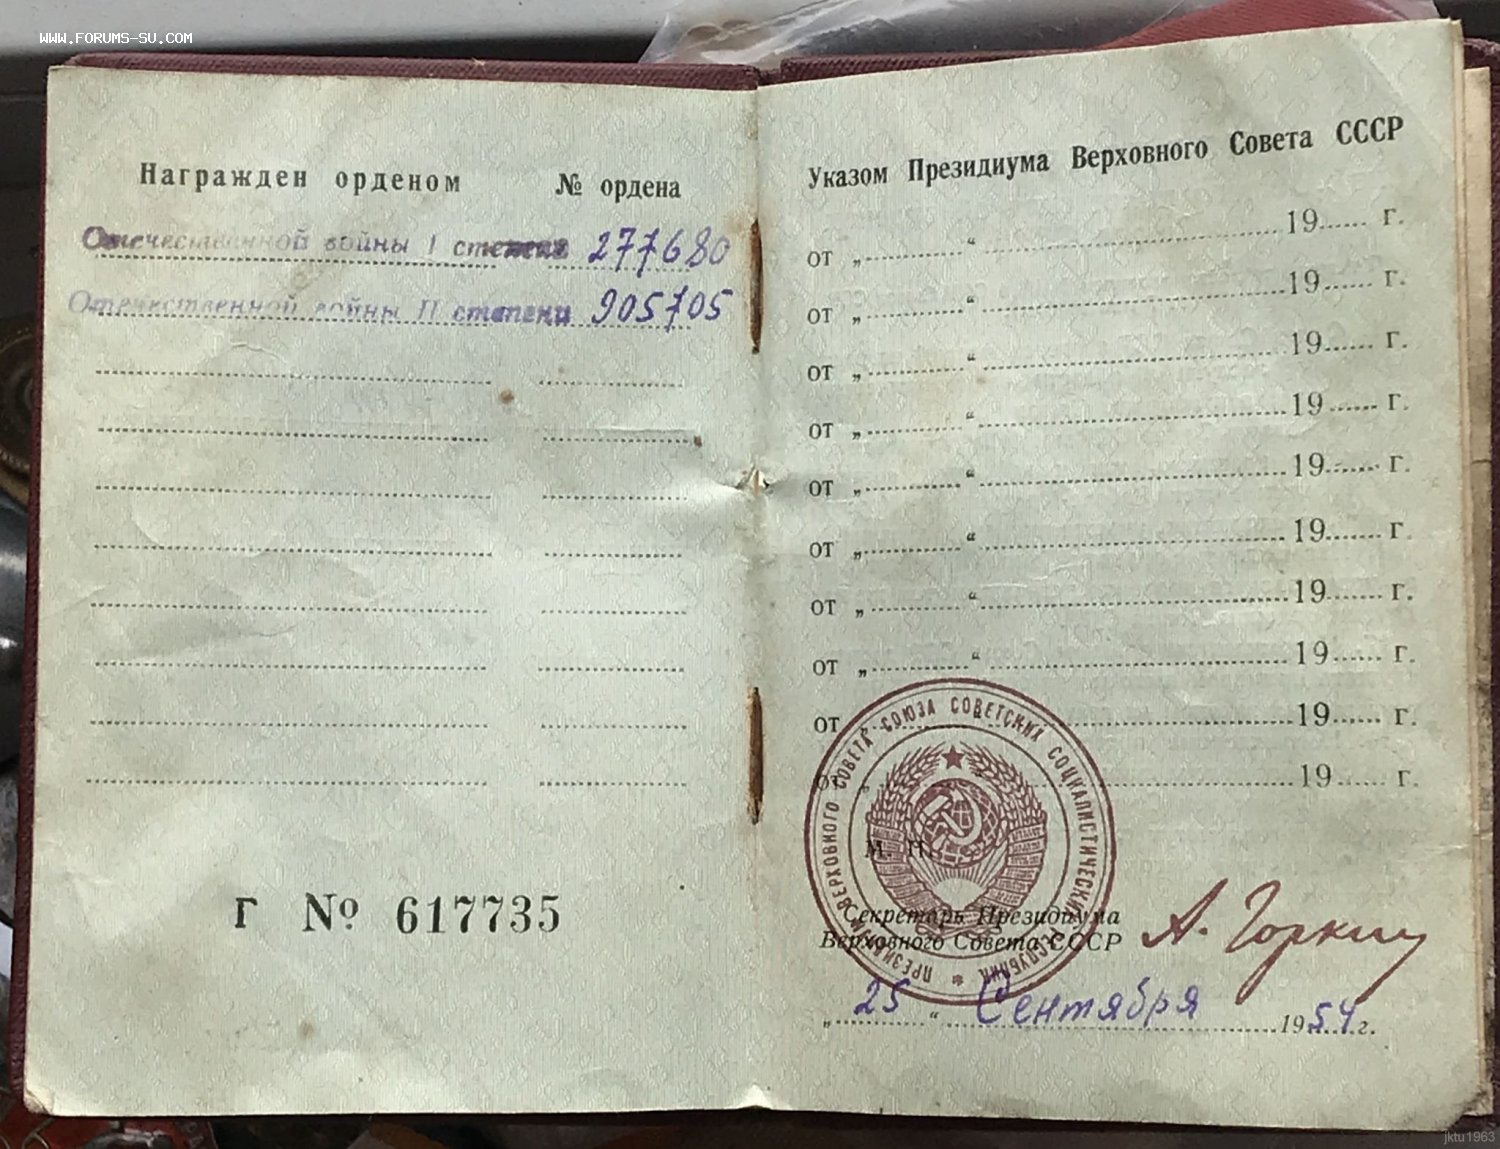 www.forums-su.com
Награжден орденом № ордена
Отечественной войны I степени 277680
Отечественной войны II степени 905705
Г № 617735
Указом Президиума Верховного Совета СССР
от „ “ 19 г.
от „ “ 19 г.
от „ “ 19 г.
от „ “ 19 г.
от „ “ 19 г.
от „ “ 19 г.
от „ “ 19 г.
от „ “ 19 г.
от „ “ 19 г.
от „ “ 19 г.
ПРЕЗИДИУМ ВЕРХОВНОГО СОВЕТА СОЮЗА СОВЕТСКИХ СОЦИАЛИСТИЧЕСКИХ РЕСПУБЛИК
М. П.
Секретарь Президиума
Верховного Совета СССР А. Горкин
„ 25 “ Сентября 1954 г.
jktu1963